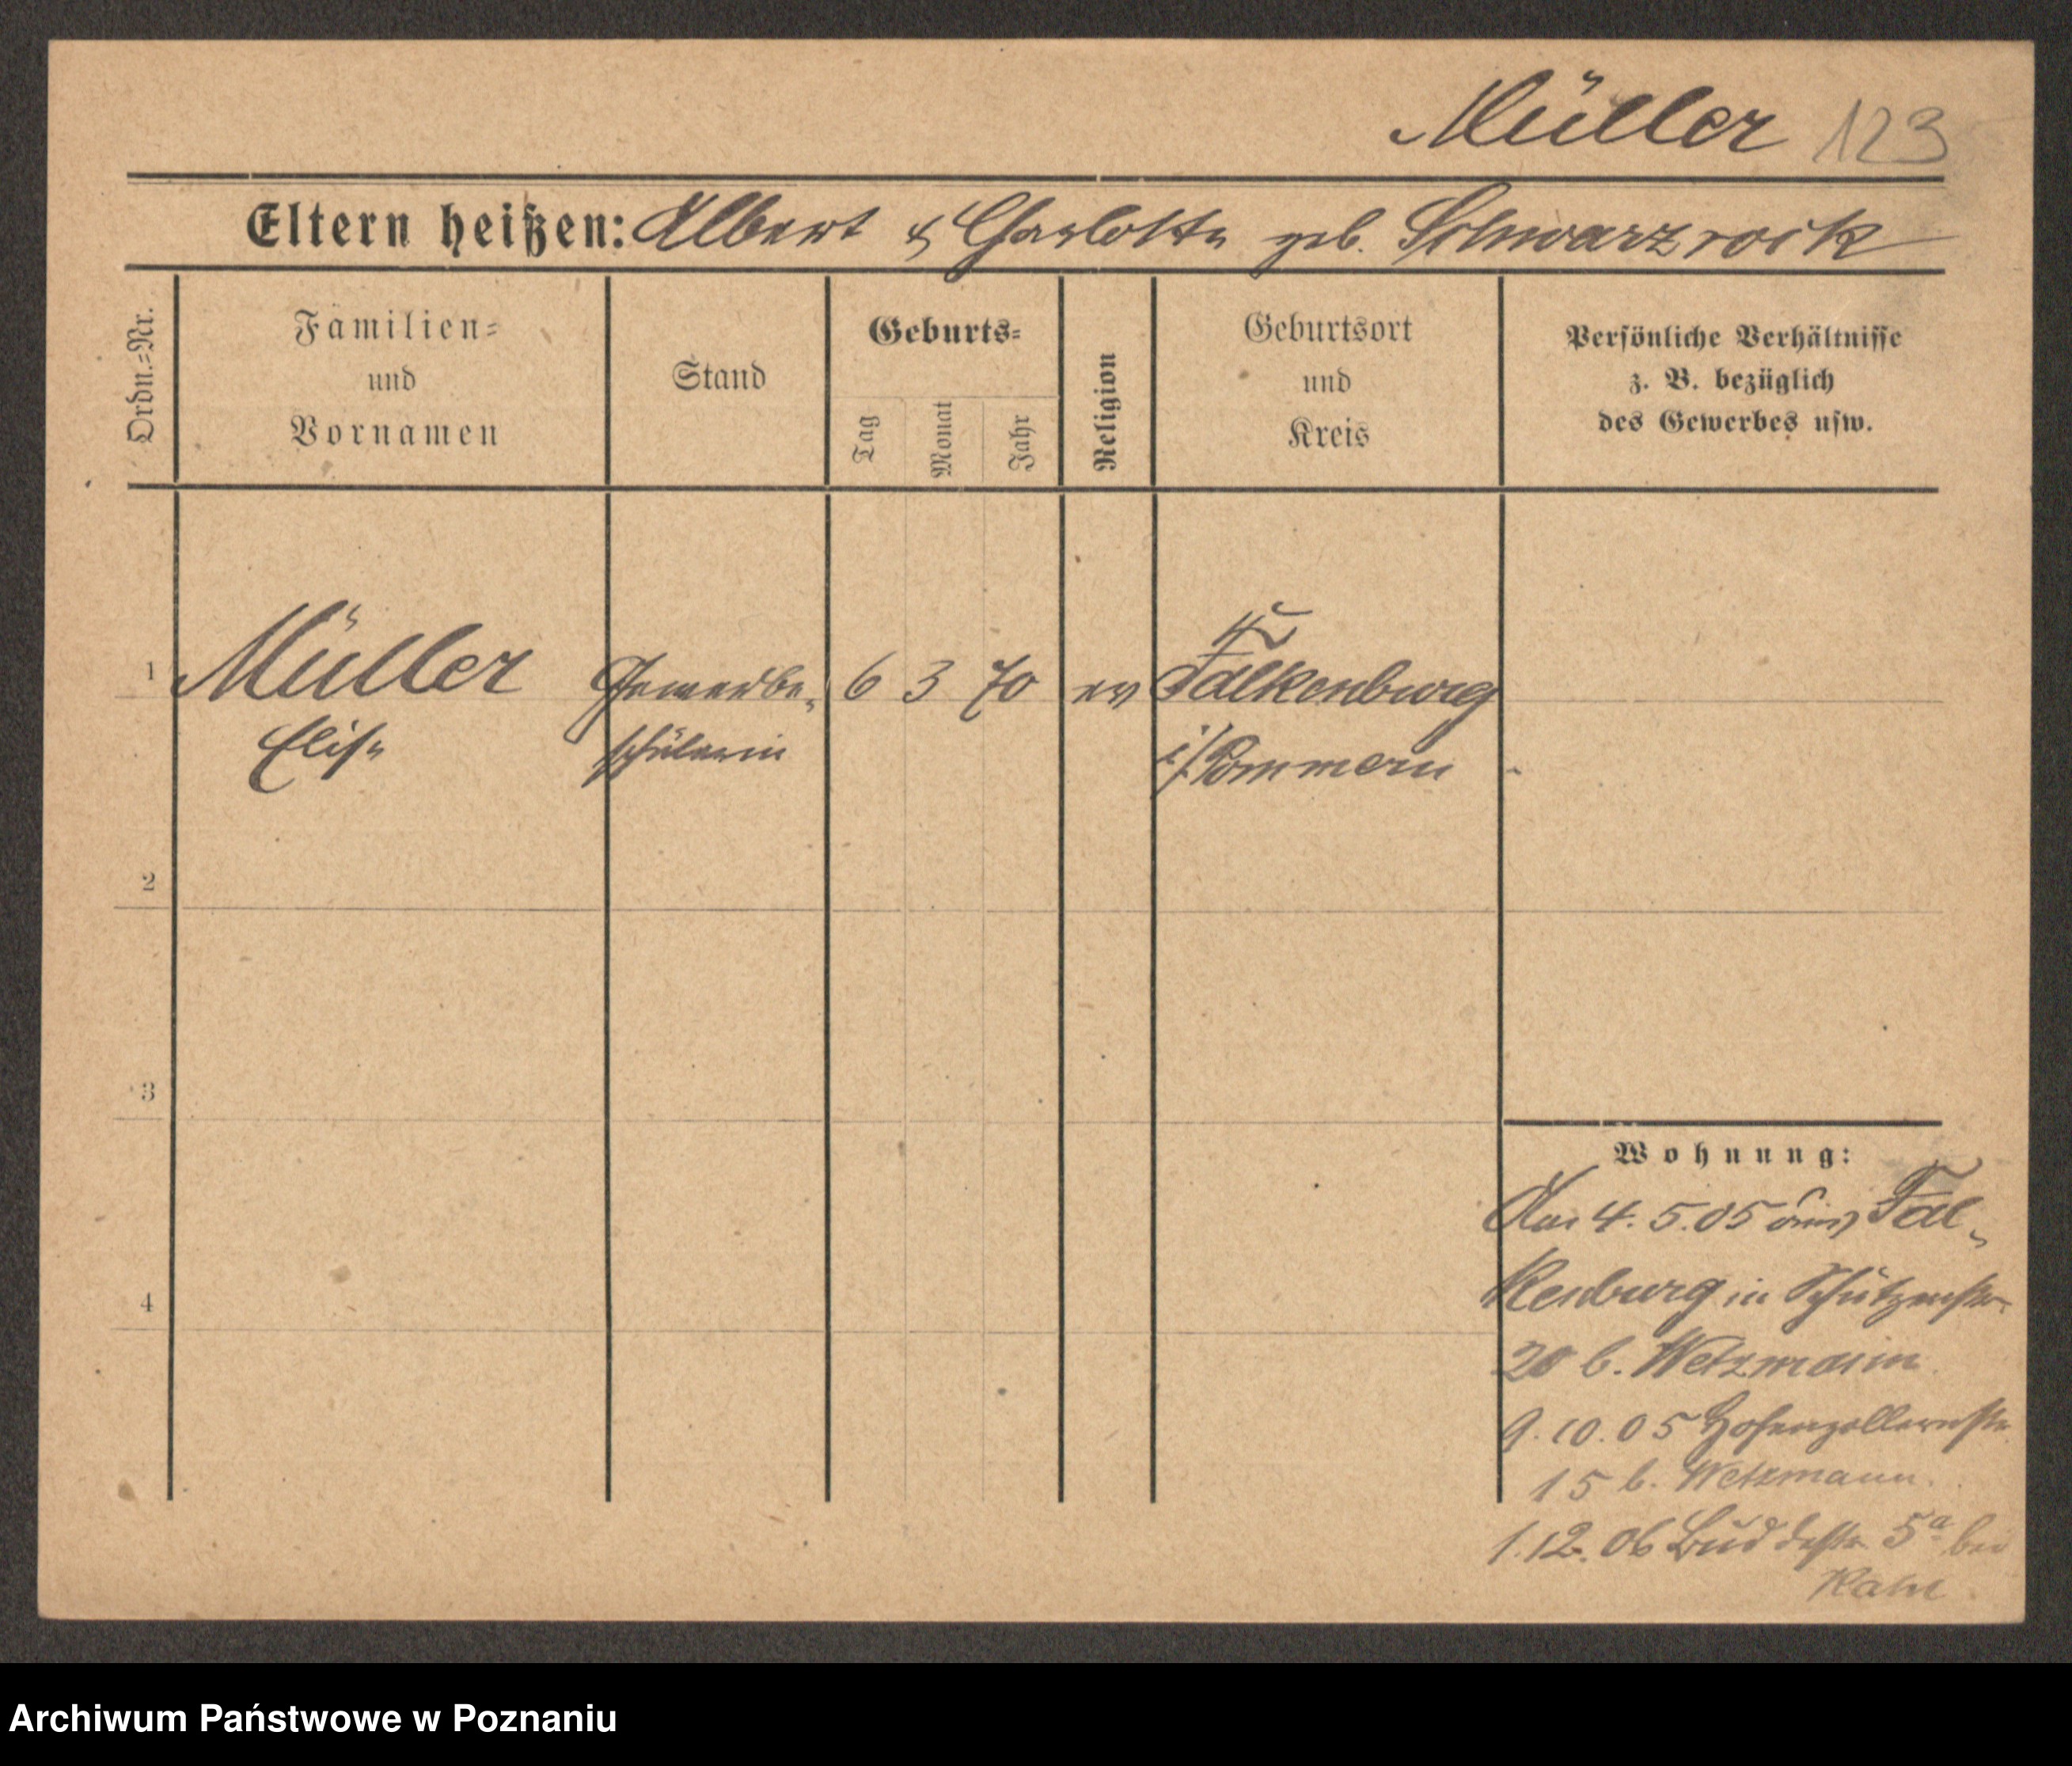 Müller 123
Eltern heißen: Albert & Charlotte geb. Schwarzrock
Ordn.=Nr.
Familien=
und
Vornamen
Stand
Geburts=
Tag
Monat
Jahr
Religion
Geburtsort
und
Kreis
Persönliche Verhältnisse
z. B. bezüglich
des Gewerbes usw.
1 Müller Gewerbe- 6 3 70 ev Falkenburg
Elise schülerin i/Pommern
2
3
4
Wohnung:
Am 4. 5. 05 aus Fal-
kenburg in Schützenstr.
20 b. Wetzmann
9. 10. 05 Hohenzollernstr.
15 b. Wetzmann.
1. 12. 06 Buddestr. 5a bei
Rahn
Archiwum Państwowe w Poznaniu